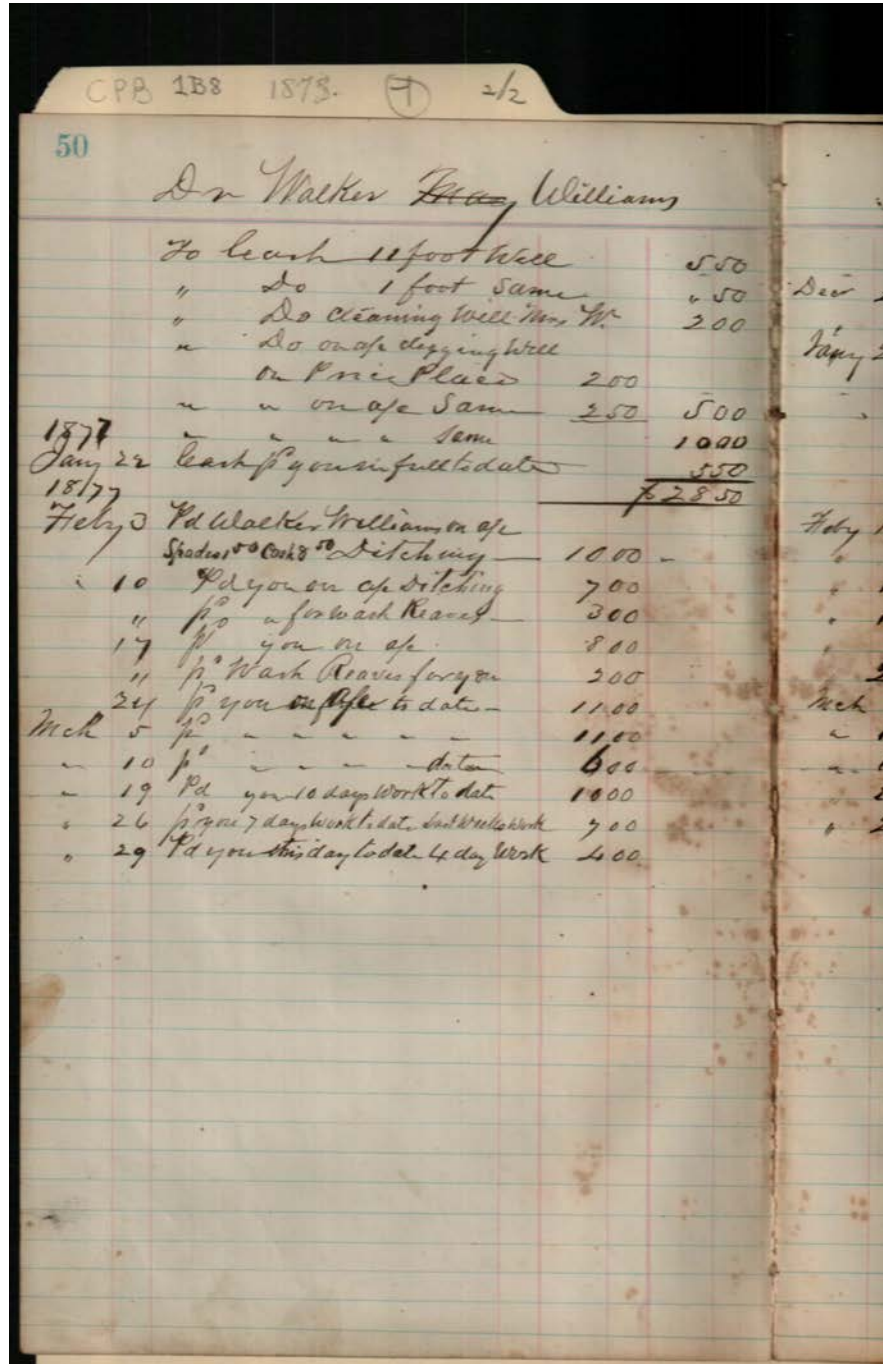 CPB 1B8 1878. 1 2/2
50
Dr Walker Williams
To Cash 11 foot Well 5 50
" Do 1 foot Same " 50
" Do Cleaning Well Mrs W. 2 00
" Do on a/c digging Well
on Price Place 2 00
" " on a/c Same 2 50 5 00
1877 " " " " Same 10 00
Jany 22 Cash pd you in full to date 5 50
1877 $28 50
Feby 3 Pd Walker Williams on a/c
Spades 1 50 Cash 8 50 Ditching 10 00
" 10 Pd you on a/c Ditching 7 00
" pd " for Wash Reaves 3 00
17 pd you on a/c 8 00
" pd Wash Reaves for you 2 00
24 pd you on a/c to date 11 00
Mch 5 pd " " " " " 11 00
" 10 pd " " " " date 6 00
" 19 Pd you 10 days Work to date 10 00
" 26 pd you 7 days Work to date Work 7 00
" 29 Pd you this day to date 4 day Work 4 00
Decr 2
Jany 2
Feby 1
2
Mch